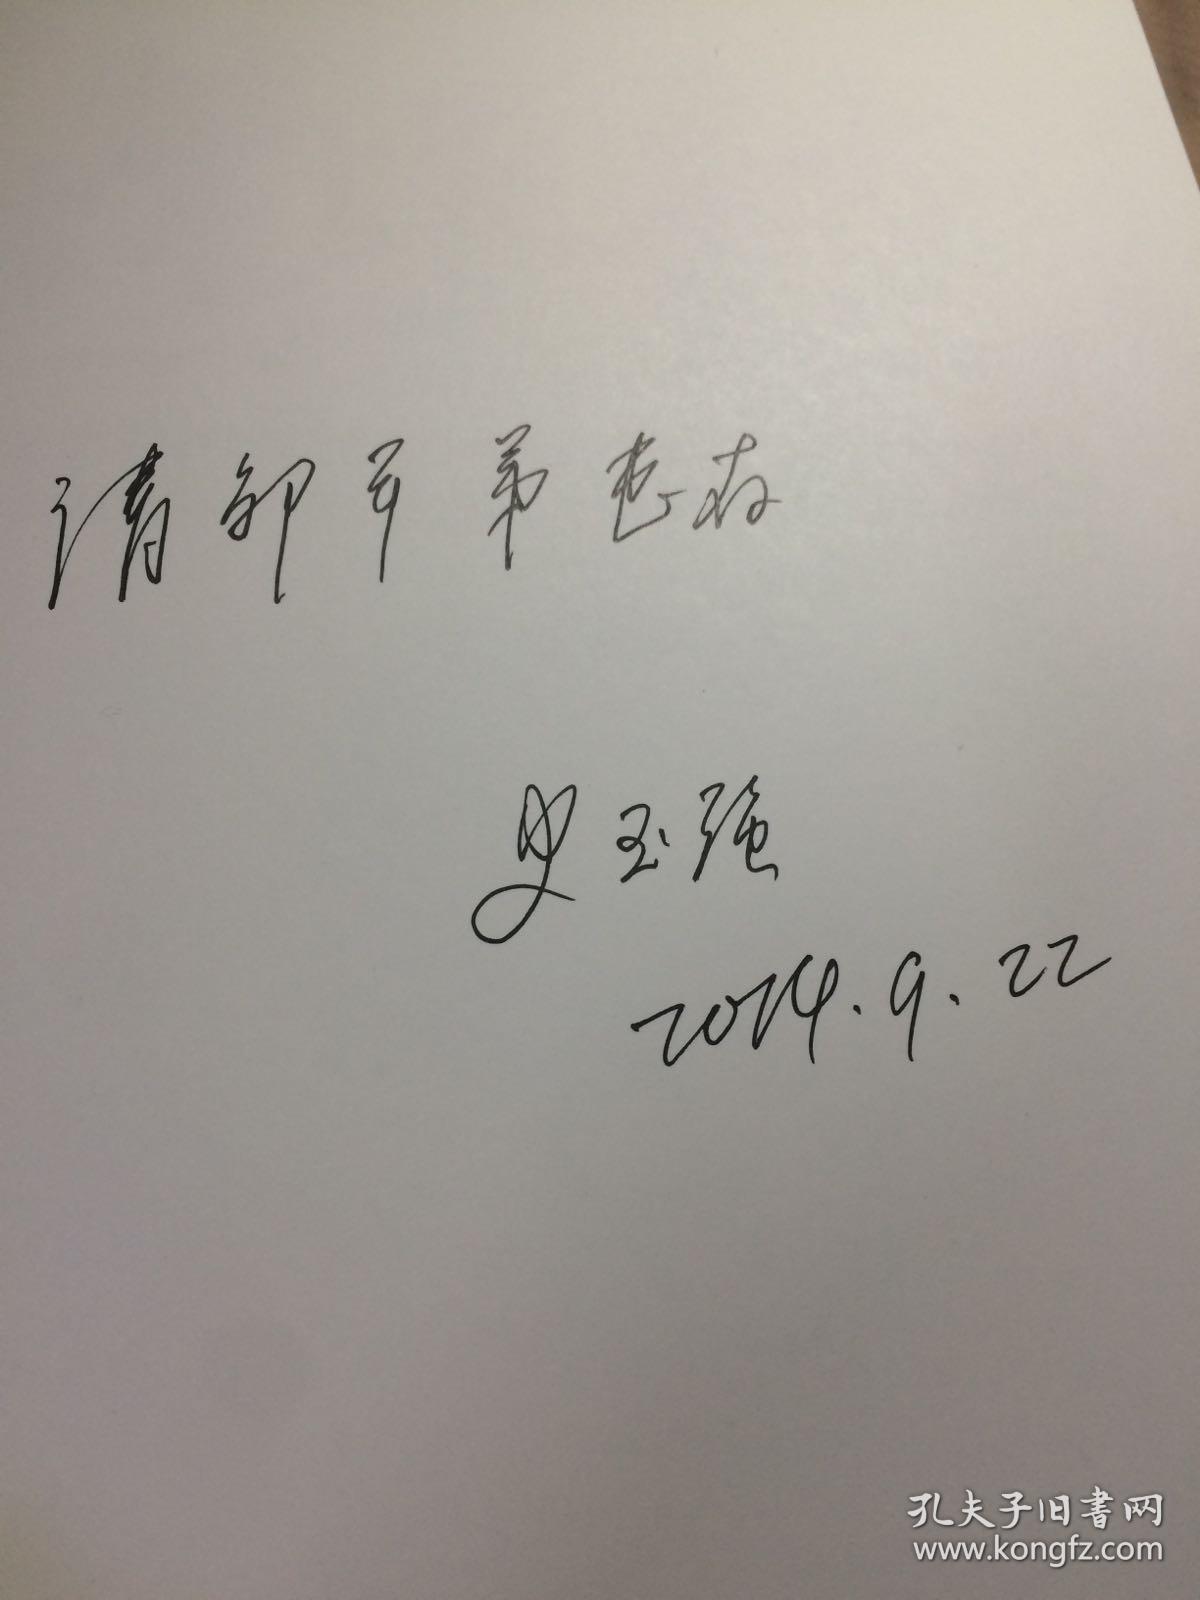 请邹平弟惠存
史玉强
2014.9.22
孔夫子旧書网
www.kongfz.com